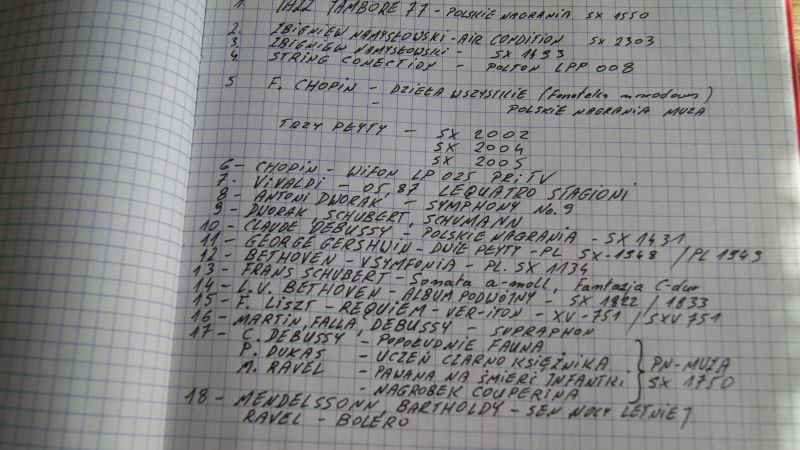 1. JAZZ JAMBORE 77 - POLSKIE NAGRANIA SX 1550
2. ZBIGNIEW NAMYSŁOWSKI - AIR CONDITION SX 2303
3. ZBIGNIEW NAMYSŁOWSKI - SX 1493
4. STRING CONECTION - POLTON LPP 008
5 F. CHOPIN - DZIEŁA WSZYSTKIE (Fonoteka narodowa)
- POLSKIE NAGRANIA MUZA
TRZY PŁYTY - SX 2002
SX 2004
SX 2005
6 - CHOPIN - WIFON LP 025 PRiTV
7 - VIVALDI - 05,87 LEQUATRO STAGIONI.
8 - ANTONI DWORAK - SYMPHONY No. 9
9 - DWORAK, SCHUBERT, SCHUMANN
10 - CLAUDE DEBUSSY - POLSKIE NAGRANIA - SX 1431
11 - GEORGE GERSHWIN - DWIE PŁYTY - PL SX-1948 / PL 1949
12 - BETHOVEN - V SYMFONIA - PL. SX 1134
13 - FRANS SCHUBERT - Sonata a-moll, Fantazja C-dur
14 - L.V. BETHOVEN - ALBUM PODWÓJNY - SX 1822 / 1833
15 - F. LISZT - REQUIEM - VERITON - XV-751 / SXV 751
16 - MARTIN, FALLA, DEBUSSY - SUPRAPHON
17 - C. DEBUSSY - POPOŁUDNIE FAUNA
P. DUKAS - UCZEŃ CZARNOKSIĘŻNIKA } PN-MUZA
M. RAVEL - PAWANA NA ŚMIERĆ INFANTKI SX 1750
- NAGROBEK COUPERINA
18 - MENDELSSONN, BARTHOLDY - SEN NOCY LETNIEJ
RAVEL - BOLERO